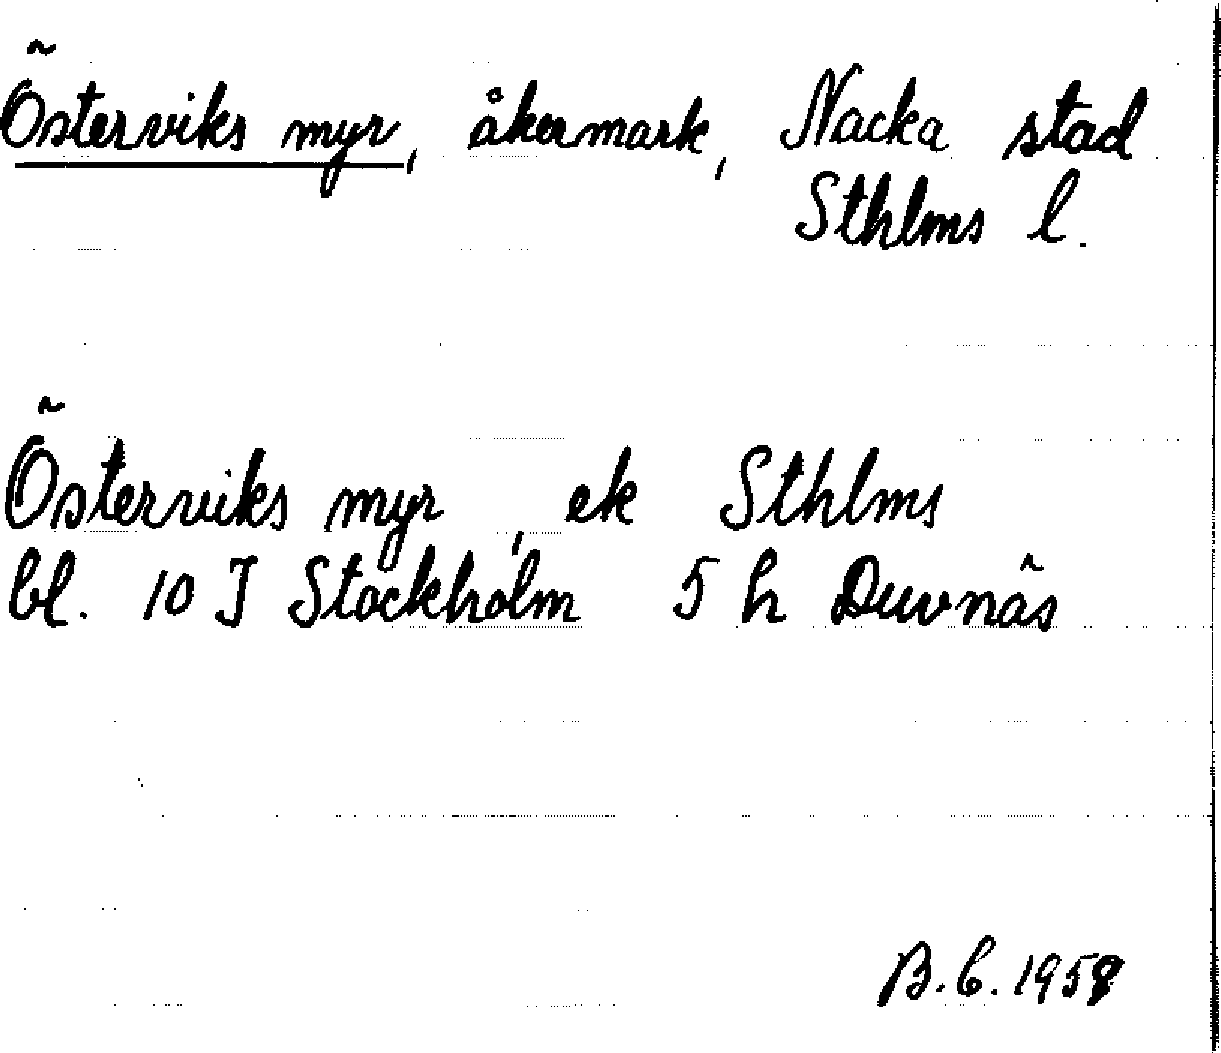 Österviks myr, åkermark, Nacka stad
Sthlms l.
Österviks myr, ek Sthlms
bl. 10 J Stockholm 5 h Duvnäs
B.C. 1958